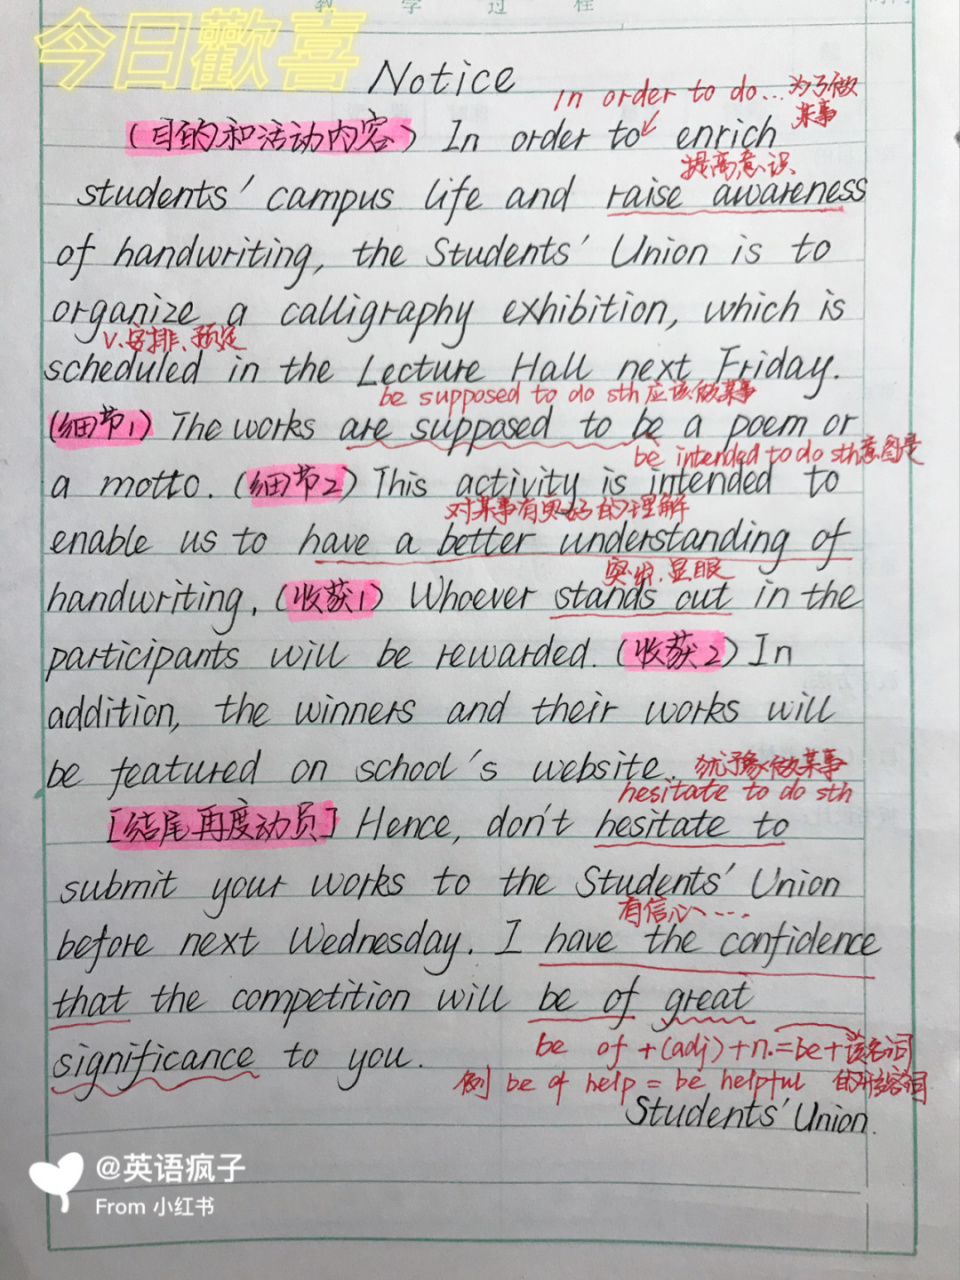 教 学 过 程
今日歡喜
Notice
in order to do... 为了做
某事
(目的和活动内容) In order to enrich
提高意识
students' campus life and raise awareness
of handwriting, the Students' Union is to
organize a calligraphy exhibition, which is
v.安排、预定
scheduled in the Lecture Hall next Friday.
be supposed to do sth 应该做某事
(细节1) The works are supposed to be a poem or
be intended to do sth意图是
a motto. (细节2) This activity is intended to
对某事有更好的理解
enable us to have a better understanding of
突出、显眼
handwriting. (收获1) Whoever stands out in the
participants will be rewarded. (收获2) In
addition, the winners and their works will
be featured on school's website. 犹豫做某事
hesitate to do sth
[结尾再度动员] Hence, don't hesitate to
submit your works to the Students' Union
有信心...
before next Wednesday. I have the confidence
that the competition will be of great
significance to you.
be of +(adj)+n.=be+该名词
例 be of help = be helpful 的形容词
Students' Union.
@英语疯子
From 小红书